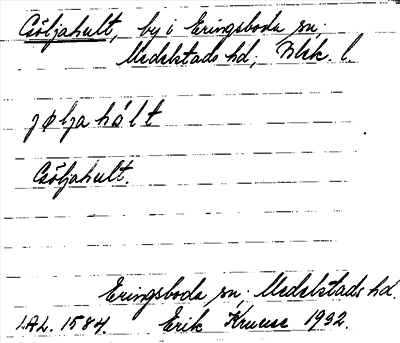 Csöljahult, by i Eringsboda sn.
Medelstads hd, Blek. l.
jølja hålt
Csöljahult.
Eringsboda sn, Medelstads hd.
LAL. 1584. Erik Kruuse 1932.